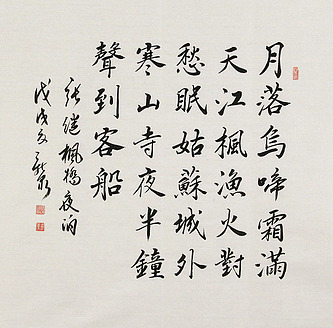 月落烏啼霜滿
天江楓漁火對
愁眠姑蘇城外
寒山寺夜半鐘
聲到客船
張继楓橋夜泊
戊戌